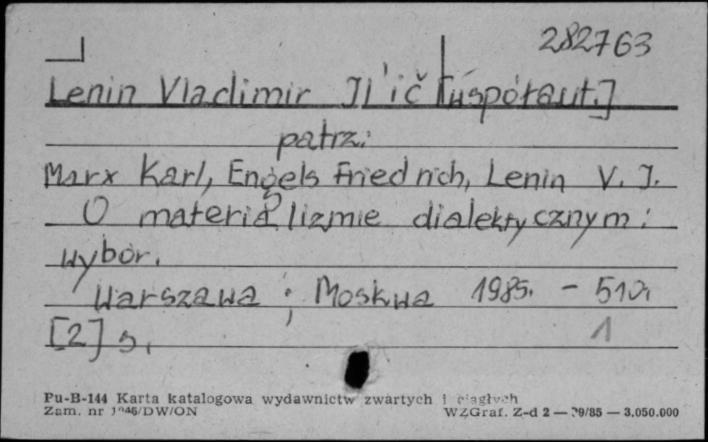 282763
Lenin Vladimir Il'ič [współaut.]
patrz:
Marx Karl, Engels Friedrich, Lenin V. I.
O materializmie dialektycznym :
wybór.
Warszawa ; Moskwa 1985. - 510,
[2] s.
1
Pu-B-144 Karta katalogowa wydawnictw zwartych i ciągłych
Zam. nr 1046/DW/ON WZGraf. Z-d 2 — 39/85 — 3.050.000